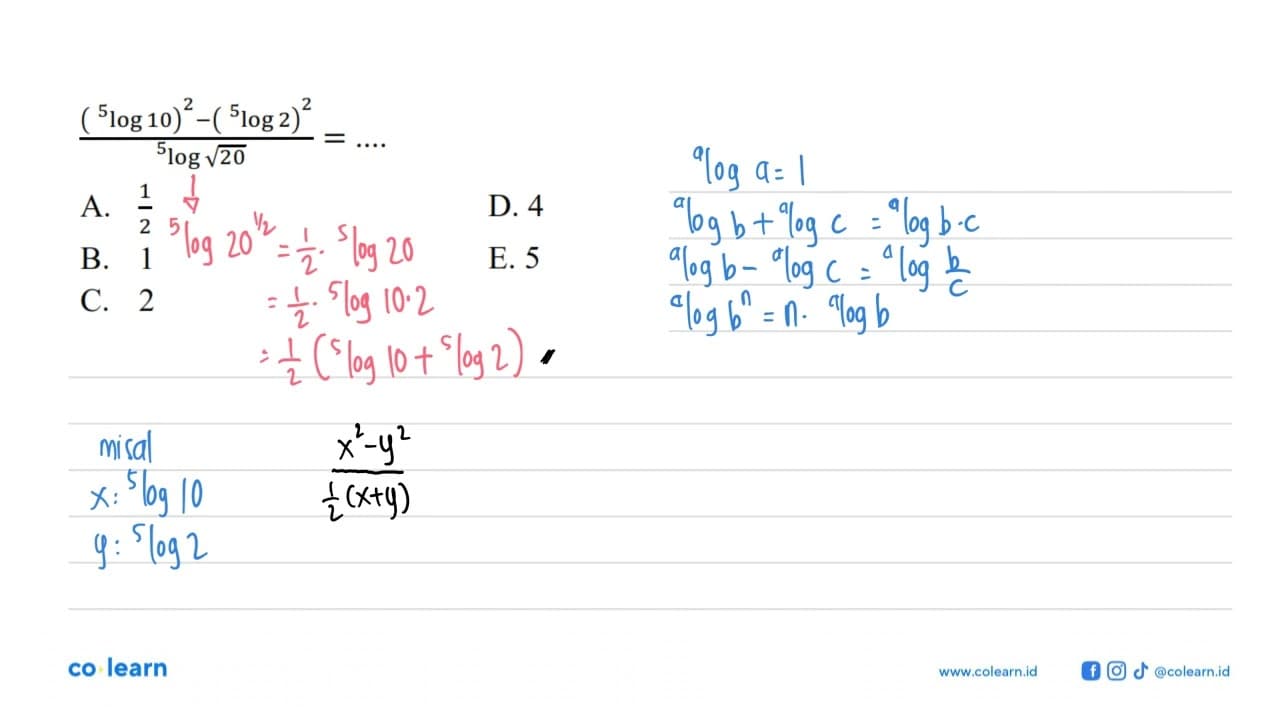 (⁵log 10)² − (⁵log 2)² / ⁵log √20 = ....
A. 1/2
B. 1
C. 2
D. 4
E. 5
⁵log 20^½ = 1/2 · ⁵log 20
= 1/2 · ⁵log 10·2
= 1/2 (⁵log 10 + ⁵log 2)
ᵃlog a = 1
ᵃlog b + ᵃlog c = ᵃlog b·c
ᵃlog b − ᵃlog c = ᵃlog b/c
ᵃlog bⁿ = n · ᵃlog b
misal
x: ⁵log 10
y: ⁵log 2
x² − y² / ½ (x+y)
co learn
www.colearn.id
@colearn.id